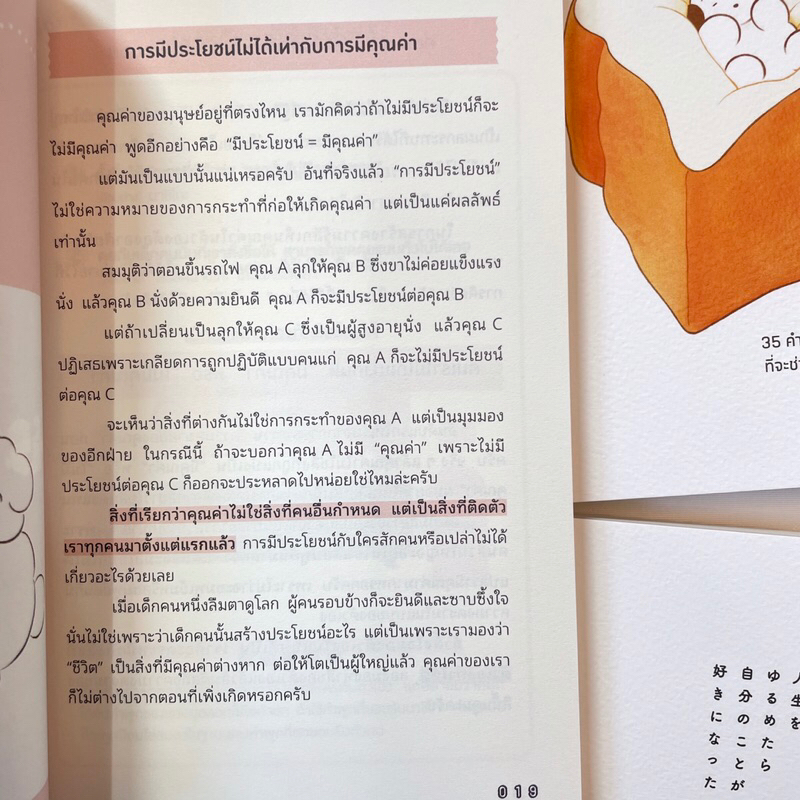 การมีประโยชน์ไม่ได้เท่ากับการมีคุณค่า
คุณค่าของมนุษย์อยู่ที่ตรงไหน เรามักคิดว่าถ้าไม่มีประโยชน์ก็จะ
ไม่มีคุณค่า พูดอีกอย่างคือ “มีประโยชน์ = มีคุณค่า”
แต่มันเป็นแบบนั้นแน่เหรอครับ อันที่จริงแล้ว “การมีประโยชน์”
ไม่ใช่ความหมายของการกระทำที่ก่อให้เกิดคุณค่า แต่เป็นแค่ผลลัพธ์
เท่านั้น
สมมุติว่าตอนขึ้นรถไฟ คุณ A ลุกให้คุณ B ซึ่งขาไม่ค่อยแข็งแรง
นั่ง แล้วคุณ B นั่งด้วยความยินดี คุณ A ก็จะมีประโยชน์ต่อคุณ B
แต่ถ้าเปลี่ยนเป็นลุกให้คุณ C ซึ่งเป็นผู้สูงอายุนั่ง แล้วคุณ C
ปฏิเสธเพราะเกลียดการถูกปฏิบัติแบบคนแก่ คุณ A ก็จะไม่มีประโยชน์
ต่อคุณ C
จะเห็นว่าสิ่งที่ต่างกันไม่ใช่การกระทำของคุณ A แต่เป็นมุมมอง
ของอีกฝ่าย ในกรณีนี้ ถ้าจะบอกว่าคุณ A ไม่มี “คุณค่า” เพราะไม่มี
ประโยชน์ต่อคุณ C ก็ออกจะประหลาดไปหน่อยใช่ไหมล่ะครับ
สิ่งที่เรียกว่าคุณค่าไม่ใช่สิ่งที่คนอื่นกำหนด แต่เป็นสิ่งที่ติดตัว
เราทุกคนมาตั้งแต่แรกแล้ว การมีประโยชน์กับใครสักคนหรือเปล่าไม่ได้
เกี่ยวอะไรด้วยเลย
เมื่อเด็กคนหนึ่งลืมตาดูโลก ผู้คนรอบข้างก็จะยินดีและซาบซึ้งใจ
นั่นไม่ใช่เพราะว่าเด็กคนนั้นสร้างประโยชน์อะไร แต่เป็นเพราะเรามองว่า
“ชีวิต” เป็นสิ่งที่มีคุณค่าต่างหาก ต่อให้โตเป็นผู้ใหญ่แล้ว คุณค่าของเรา
ก็ไม่ต่างไปจากตอนที่เพิ่งเกิดหรอกครับ
019
35 คำ
ที่จะช่ว
人生を
ゆるめたら
自分のことが
好きになった